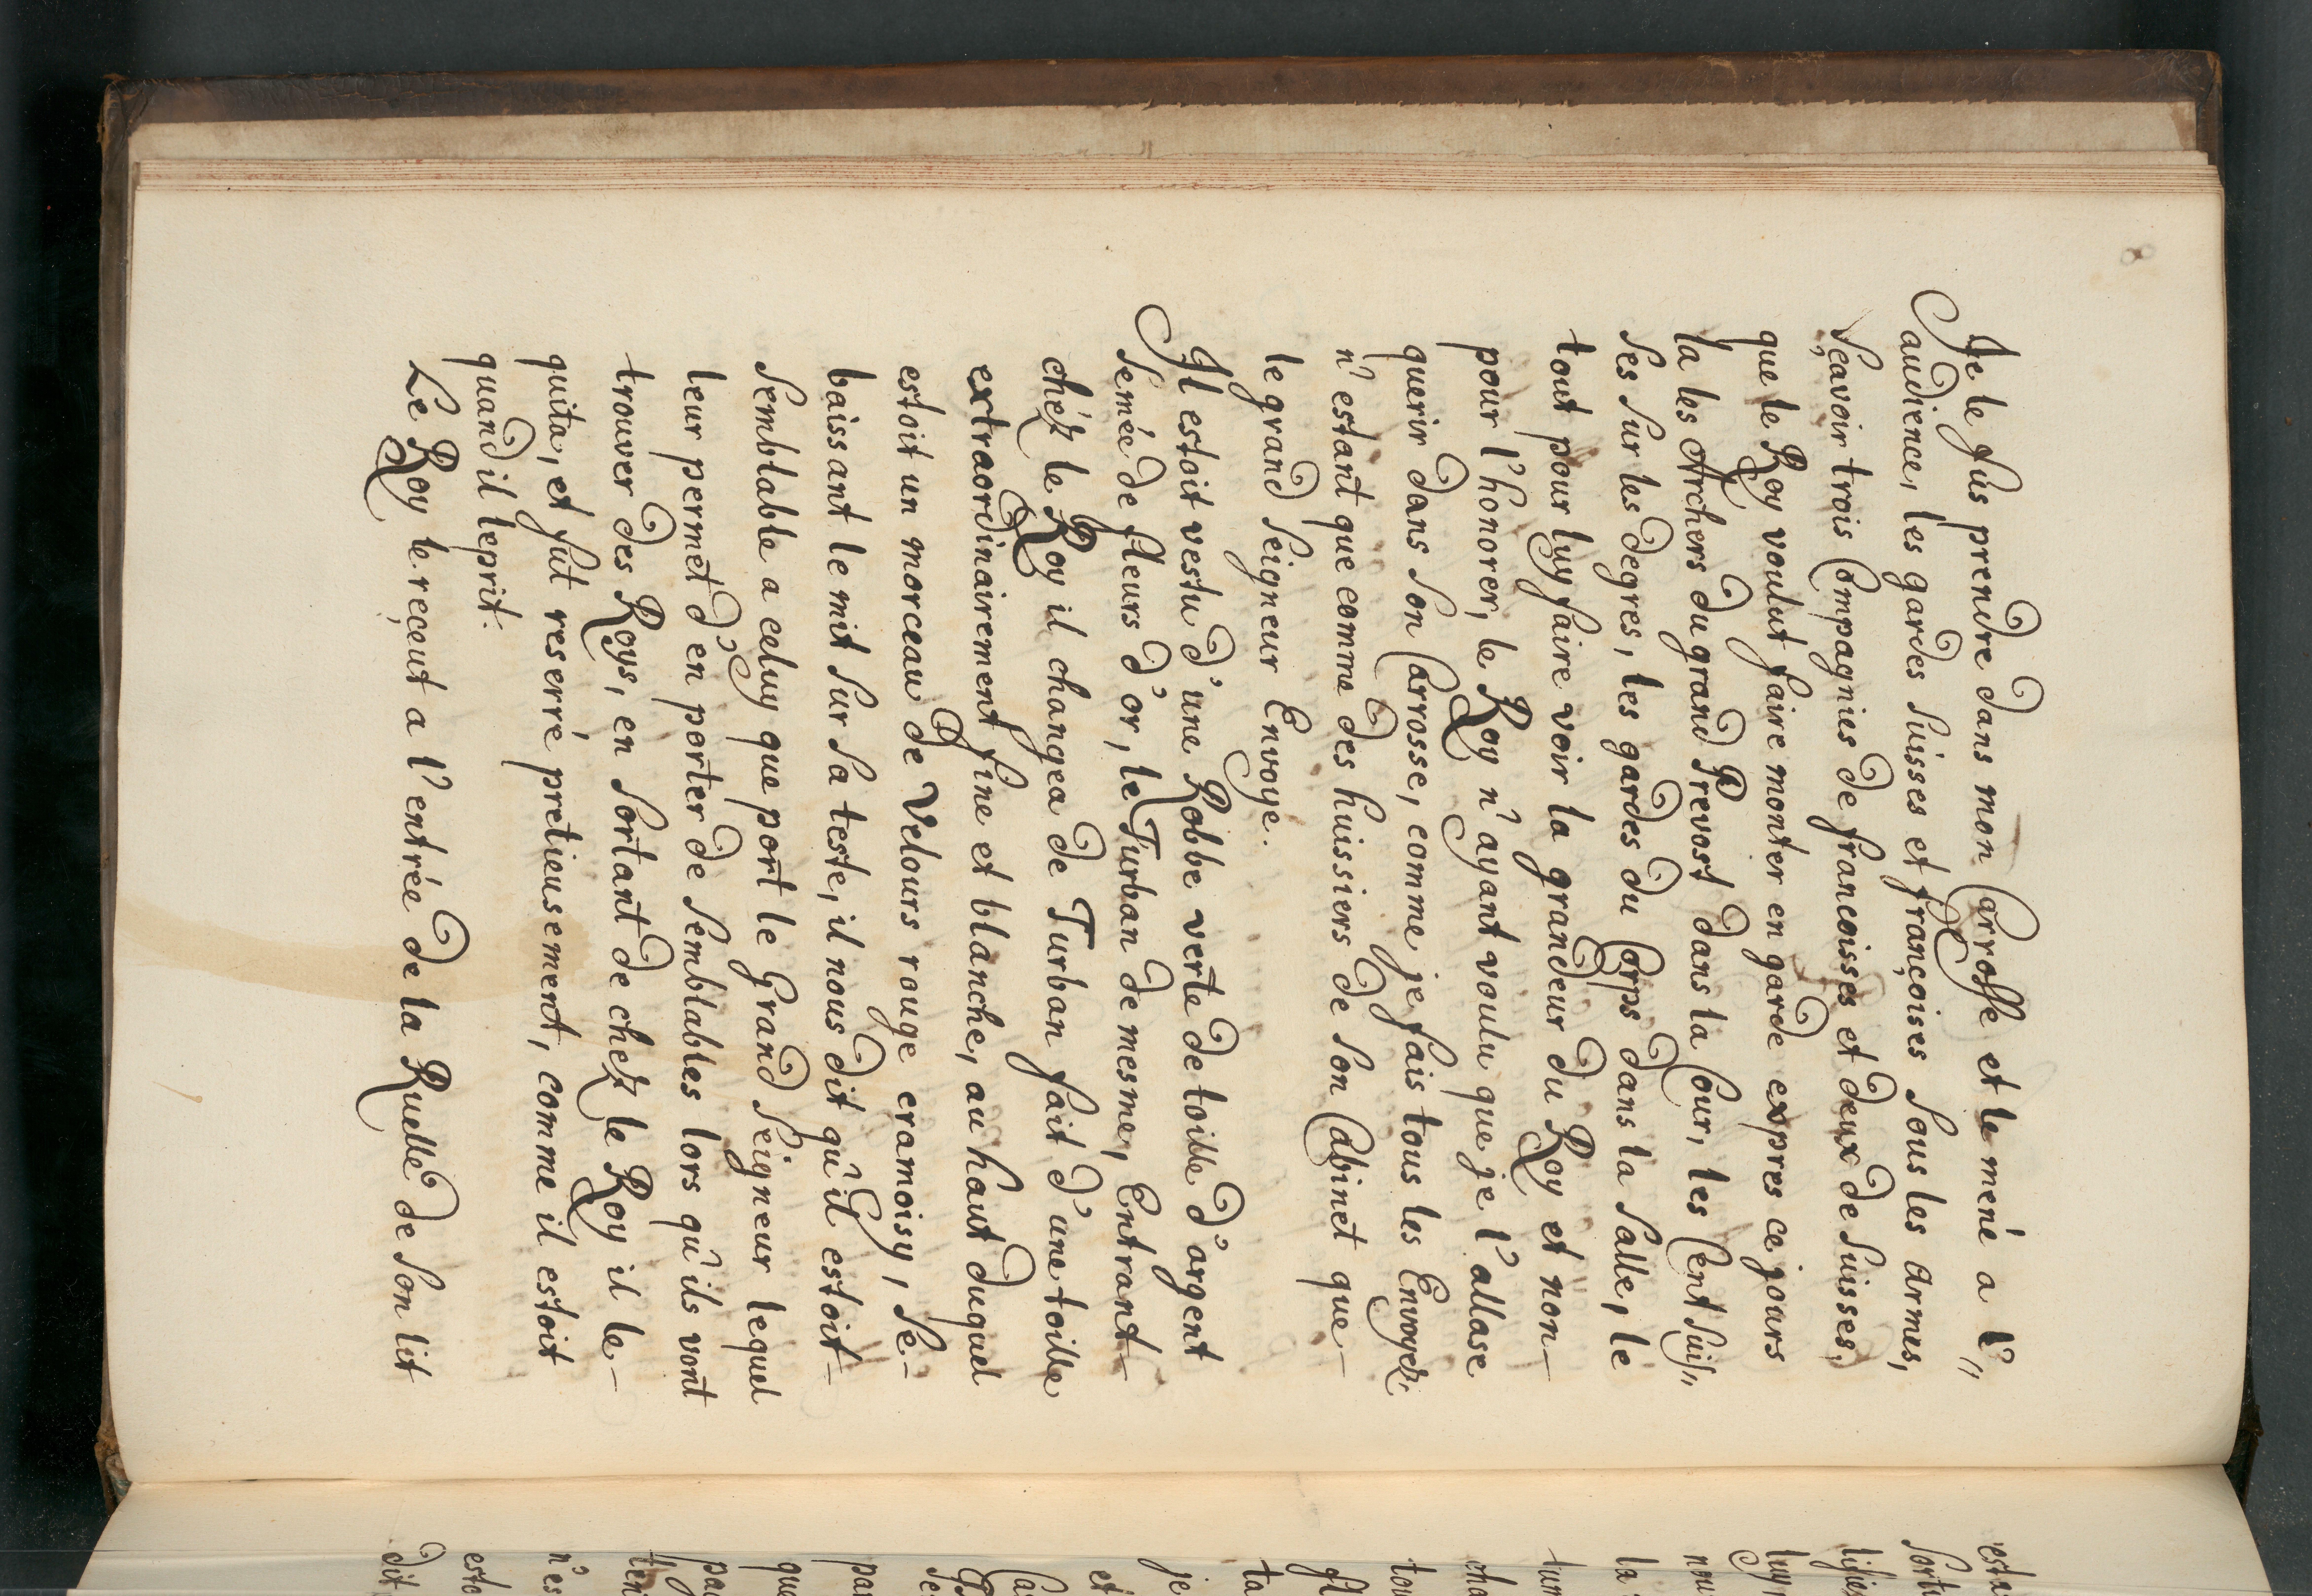 Je le fus prendre dans mon Carrosse et le mené a l'"
audience, les gardes suisses et françoises sous les armes,
sçavoir trois Compagnies de francoisses et deux de suisses,
que le Roy voulut faire monter en garde expres ce jours
la les Archers du grand Prevost dans la Cour, les Cent suis"
ses sur les degres, les gardes du Corps dans la salle, le
tout pour luy faire voir la grandeur du Roy et non-
pour l'honorer, le Roy n'ayant voulu que je l'allase
querir dans son Carrosse, comme je fais tous les Envoyez,
n'estant que comme des huissiers de son Cabinet que-
le grand seigneur Envoye.
Il estoit vestu d'une Robbe verte de toille d'argent
semée de fleurs d'or, le Turban de mesme, Entrant-
chéz le Roy il changea de Turban fait d'une toille
extraordinairement fine et blanche, au haut duquel
estoit un morceau de Velours rouge cramoisy, se-
baissant le mit sur sa teste, il nous dit qu'il estoit-
semblable a celuy que port le Grand Seigneur lequel
leur permet d'en porter de semblables lors qu'ils vont
trouver des Roys, en sortant de chez le Roy il le-
quita, et fut reserré pretieusement, comme il estoit
quand il le prit.
Le Roy le reçeut a l'entrée de la Ruelle de son lit
resta
sorti
luy
nou
la
tun
tou
ta
et
je
se
par
que
pa
ten
n'es
esto
dit